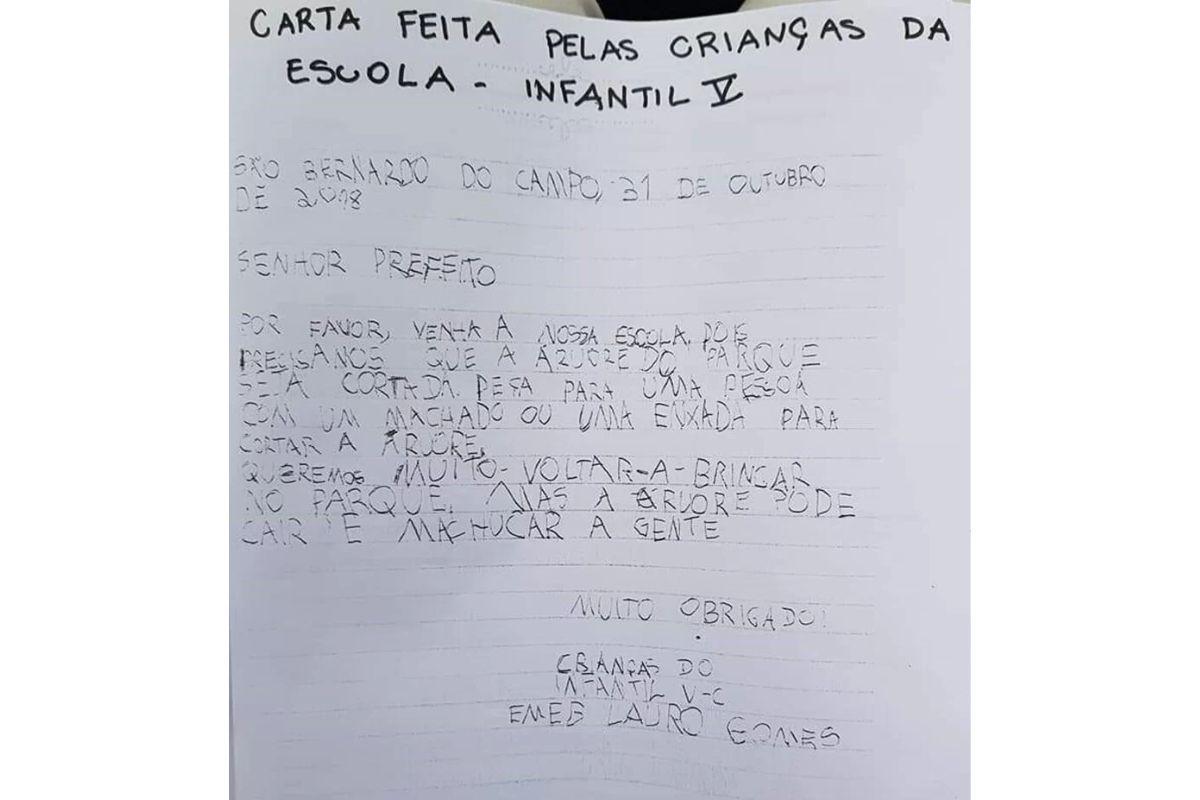 CARTA FEITA PELAS CRIANÇAS DA
ESCOLA - INFANTIL V
SÃO BERNARDO DO CAMPO, 31 DE OUTUBRO
DE 2018
SENHOR PREFEITO
POR FAVOR, VENHA A NOSSA ESCOLA, POIS
PRECISAMOS QUE A ÁRVORE DO PARQUE
SEJA CORTADA. PEÇA PARA UMA PESSOA
COM UM MACHADO OU UMA ENXADA PARA
CORTAR A ÁRVORE.
QUEREMOS MUITO-VOLTAR-A-BRINCAR
NO PARQUE, MAS A ÁRVORE PODE
CAIR E MACHUCAR A GENTE
MUITO OBRIGADO!
CRIANÇAS DO
INFANTIL V-C
EMEB LAURO GOMES